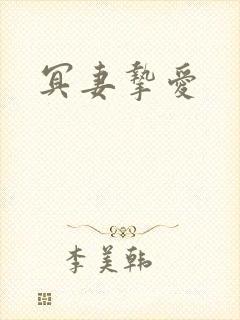 冥妻摯愛
李美韩